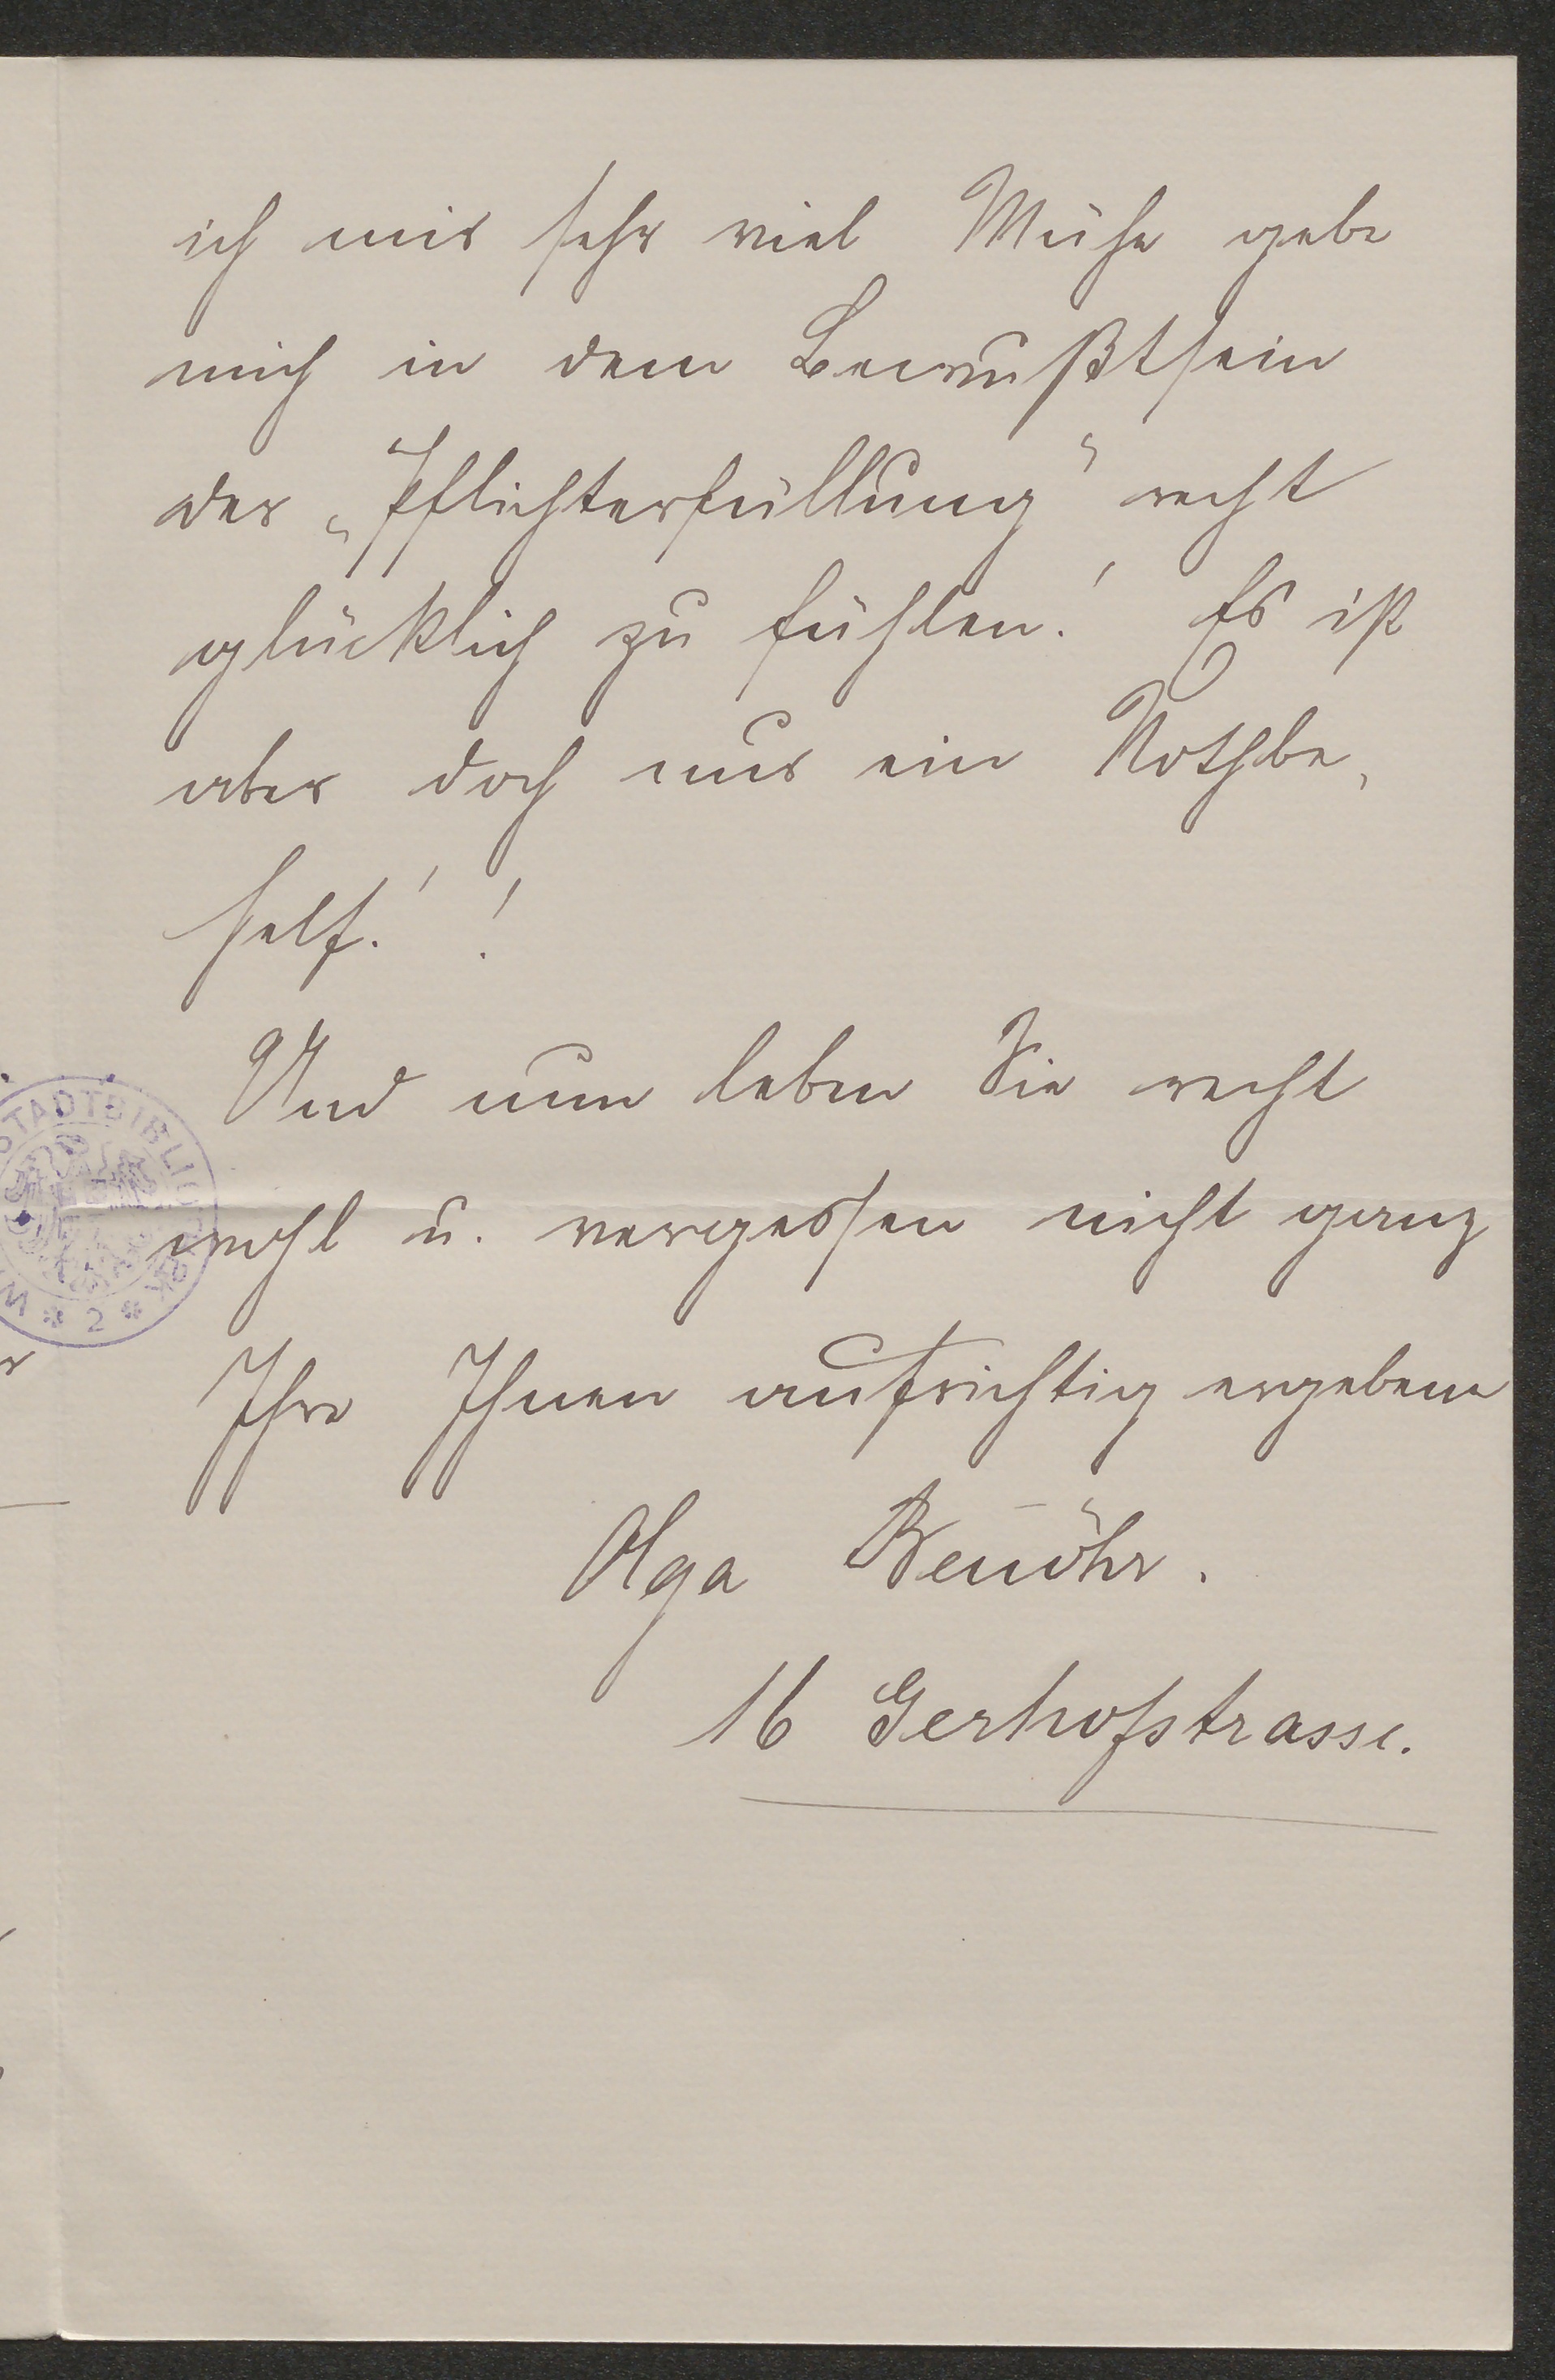 ich mir sehr viel Mühe gebe
mich in dem Bewußtsein
der „Pflichterfüllung“ recht
glücklich zu fühlen! Es ist
aber doch nur ein Nothbe„
helf! !
Und nun leben Sie recht
wohl u. vergessen nicht ganz
Ihre Ihnen aufrichtig ergebene
Olga
16 Gerhofstrasse.
STADTBIBLIOTHEK
* 2 *